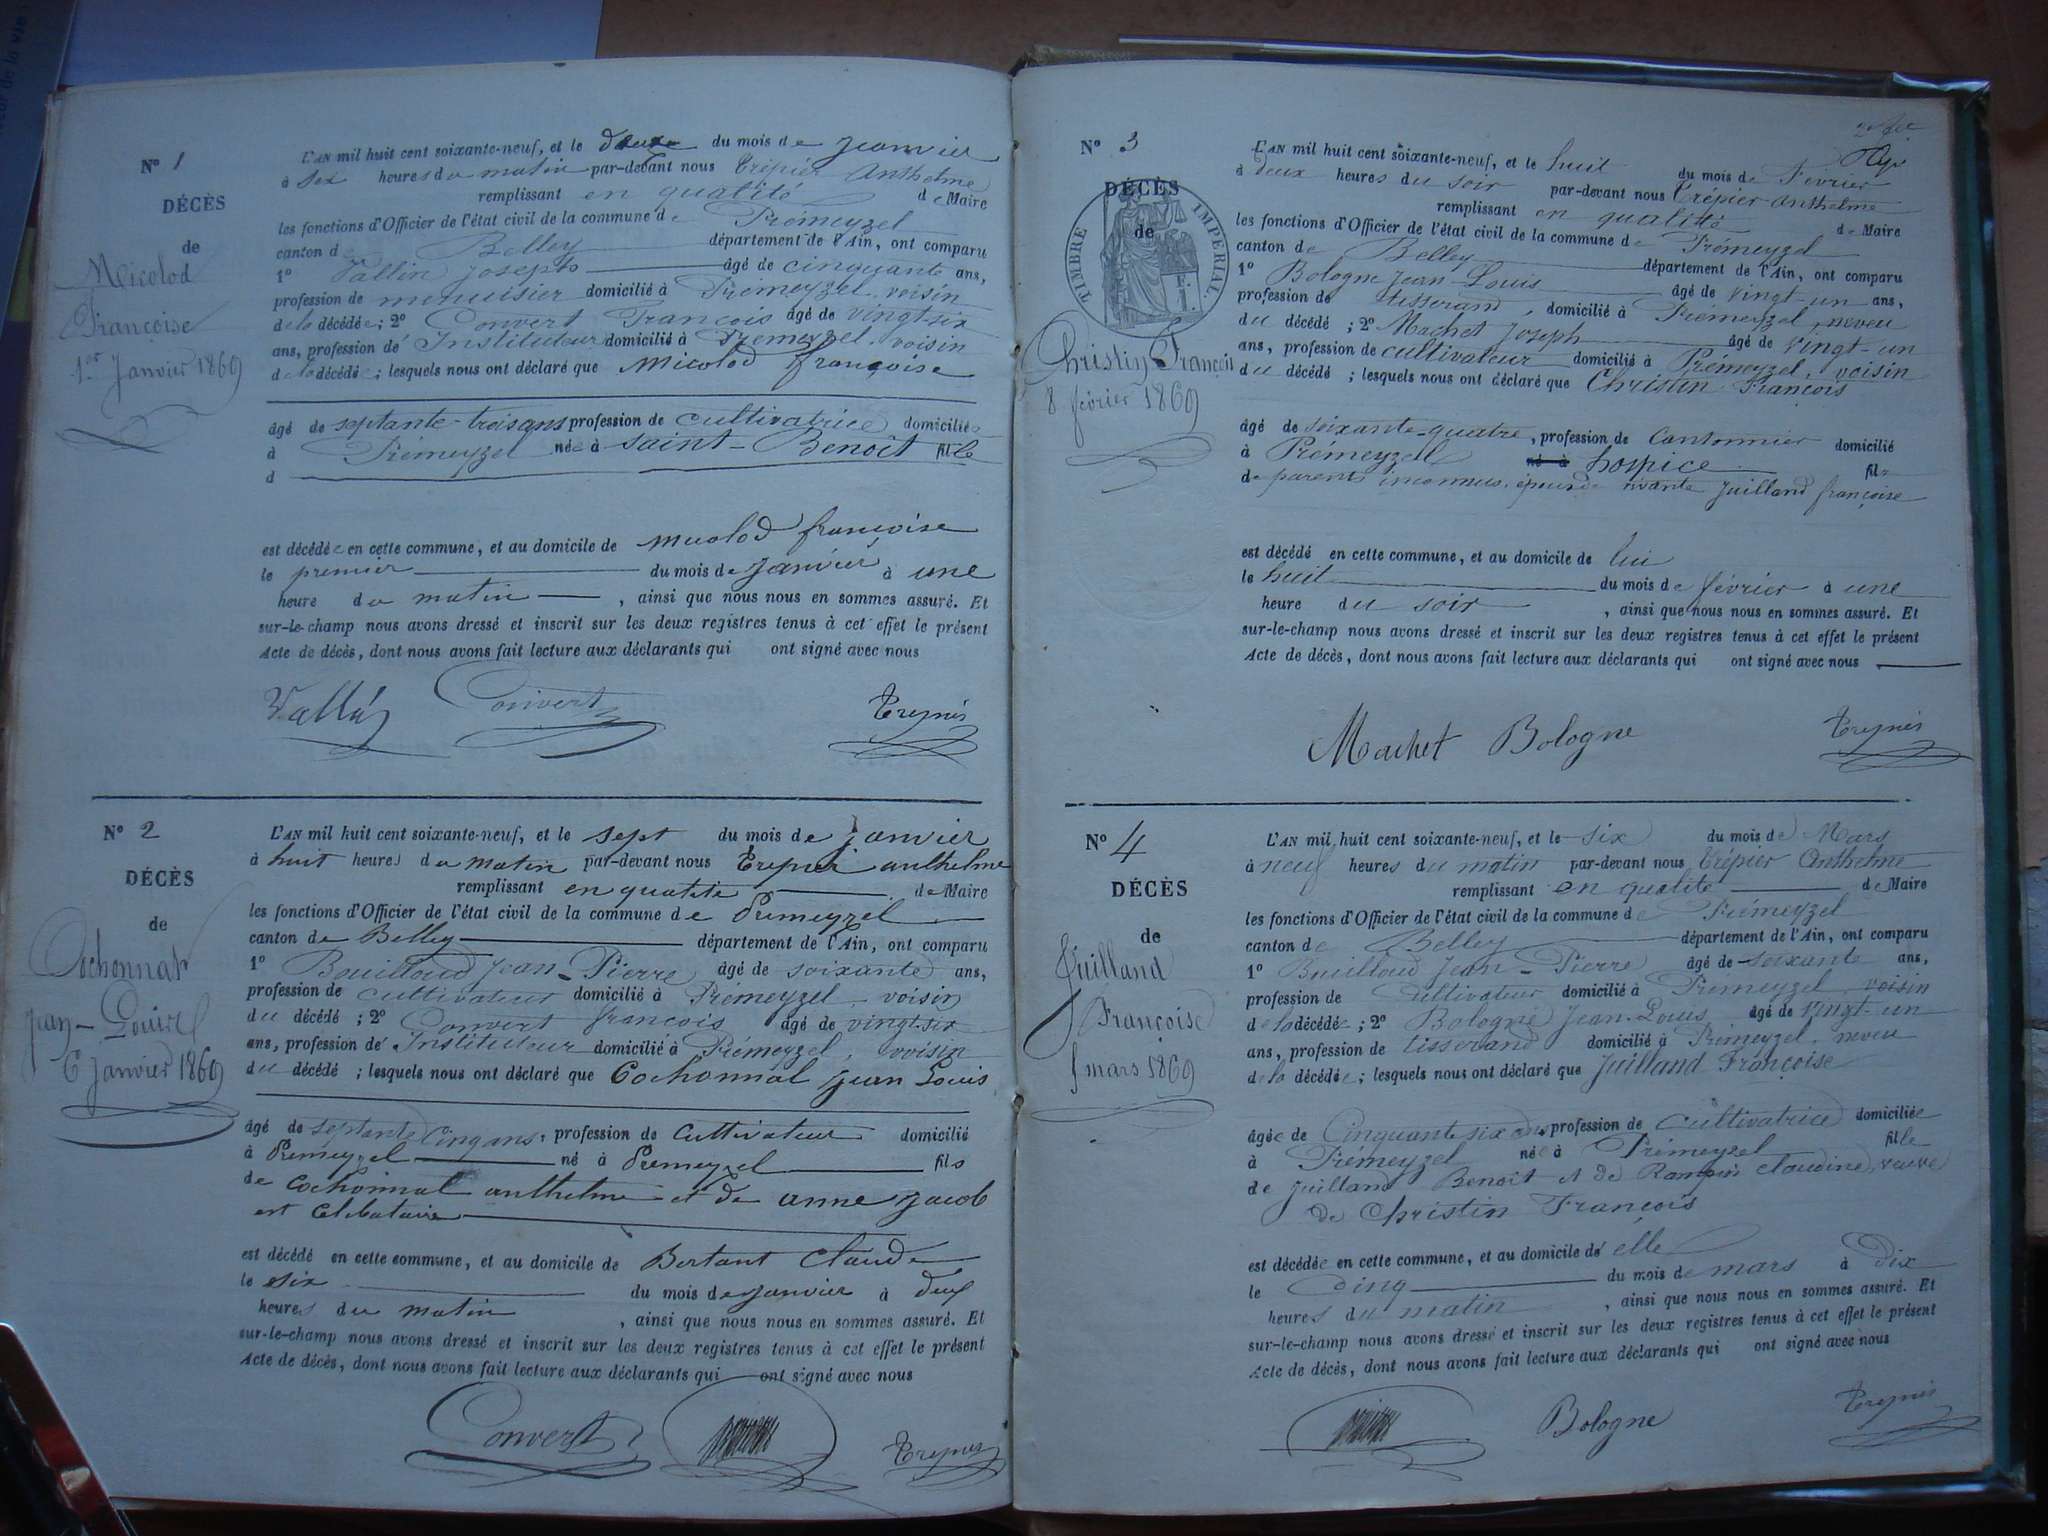 N° 1
DÉCÈS
de
Micolod
Françoise
1er Janvier 1869
L'AN mil huit cent soixante-neuf, et le deux du mois de Janvier
à six heures du matin par-devant nous Trépier Anthelme
remplissant en qualité de Maire
les fonctions d'Officier de l'état civil de la commune de Prémeyzel
canton de Belley département de l'Ain, ont comparu
1° Vallin Joseph âgé de cinquante ans,
profession de menuisier domicilié à Prémeyzel voisin
de la décédée; 2° Convert François âgé de vingt-six
ans, profession de Instituteur domicilié à Prémeyzel, voisin
de la décédée; lesquels nous ont déclaré que Micolod françoise
âgé de septante-trois ans profession de cultivatrice domiciliée
à Prémeyzel née à Saint-Benoît fille
d
est décédée en cette commune, et au domicile de Micolod françoise
le premier du mois de Janvier à une
heure du matin, ainsi que nous nous en sommes assuré. Et
sur-le-champ nous avons dressé et inscrit sur les deux registres tenus à cet effet le présent
Acte de décès, dont nous avons fait lecture aux déclarants qui ont signé avec nous
Convert Trepier
N° 2
DÉCÈS
de
Cochonnat
Jean-Louis
6 Janvier 1869
L'AN mil huit cent soixante-neuf, et le sept du mois de janvier
à huit heures du matin par-devant nous Trepier anthelme
remplissant en qualité de Maire
les fonctions d'Officier de l'état civil de la commune de Premeyzel
canton de Belley département de l'Ain, ont comparu
1° Bouilloud Jean-Pierre âgé de soixante ans,
profession de cultivateur domicilié à Prémeyzel voisin
du décédé; 2° Convert françois âgé de vingt-six
ans, profession de Instituteur domicilié à Prémeyzel, voisin
du décédé; lesquels nous ont déclaré que Cochonnat jean Louis
âgé de septante cinq ans, profession de cultivateur domicilié
à Premeyzel né à Premeyzel fils
de cochonnat anthelme et de anne jacob
est Celibataire
est décédé en cette commune, et au domicile de Bertant Claude
le six du mois de janvier à deux
heures du matin, ainsi que nous nous en sommes assuré. Et
sur-le-champ nous avons dressé et inscrit sur les deux registres tenus à cet effet le présent
Acte de décès, dont nous avons fait lecture aux déclarants qui ont signé avec nous
Convert Trepier
N° 3
DÉCÈS
de
TIMBRE IMPÉRIAL
Christin François
8 février 1869
L'AN mil huit cent soixante-neuf, et le huit du mois de Février
à deux heures du soir par-devant nous Trépier anthelme
remplissant en qualité de Maire
les fonctions d'Officier de l'état civil de la commune de Prémeyzel
canton de Belley département de l'Ain, ont comparu
1° Bologne Jean-Louis âgé de vingt-un ans,
profession de tisserand, domicilié à Prémeyzel, neveu
du décédé; 2° Machet Joseph âgé de vingt-un
ans, profession de cultivateur domicilié à Prémeyzel, voisin
du décédé; lesquels nous ont déclaré que Christin François
âgé de soixante-quatre, profession de Cantonnier domicilié
à Prémeyzel né à hospice fils
de parents inconnus, époux de vivante Juilland françoise
est décédé en cette commune, et au domicile de lui
le huit du mois de février à une
heure du soir, ainsi que nous nous en sommes assuré. Et
sur-le-champ nous avons dressé et inscrit sur les deux registres tenus à cet effet le présent
Acte de décès, dont nous avons fait lecture aux déclarants qui ont signé avec nous
Machet Bologne Trepier
N° 4
DÉCÈS
de
Juilland
Françoise
5 mars 1869
L'AN mil huit cent soixante-neuf, et le six du mois de Mars
à neuf heures du matin par-devant nous Trépier Anthelme
remplissant en qualité de Maire
les fonctions d'Officier de l'état civil de la commune de Prémeyzel
canton de Belley département de l'Ain, ont comparu
1° Bouilloud Jean-Pierre âgé de soixante ans,
profession de Cultivateur domicilié à Prémeyzel, voisin
de la décédée; 2° Bologne Jean-Louis âgé de vingt-un
ans, profession de tisserand domicilié à Prémeyzel, neveu
de la décédée; lesquels nous ont déclaré que Juilland Françoise
âgée de Cinquante six ans, profession de cultivatrice domiciliée
à Prémeyzel née à Prémeyzel fille
de Juilland Benoît et de Claudine, veuve
de Christin François
est décédée en cette commune, et au domicile de elle
le Cinq du mois de mars à Dix
heures du matin, ainsi que nous nous en sommes assuré. Et
sur-le-champ nous avons dressé et inscrit sur les deux registres tenus à cet effet le présent
Acte de décès, dont nous avons fait lecture aux déclarants qui ont signé avec nous
Bologne Trepier